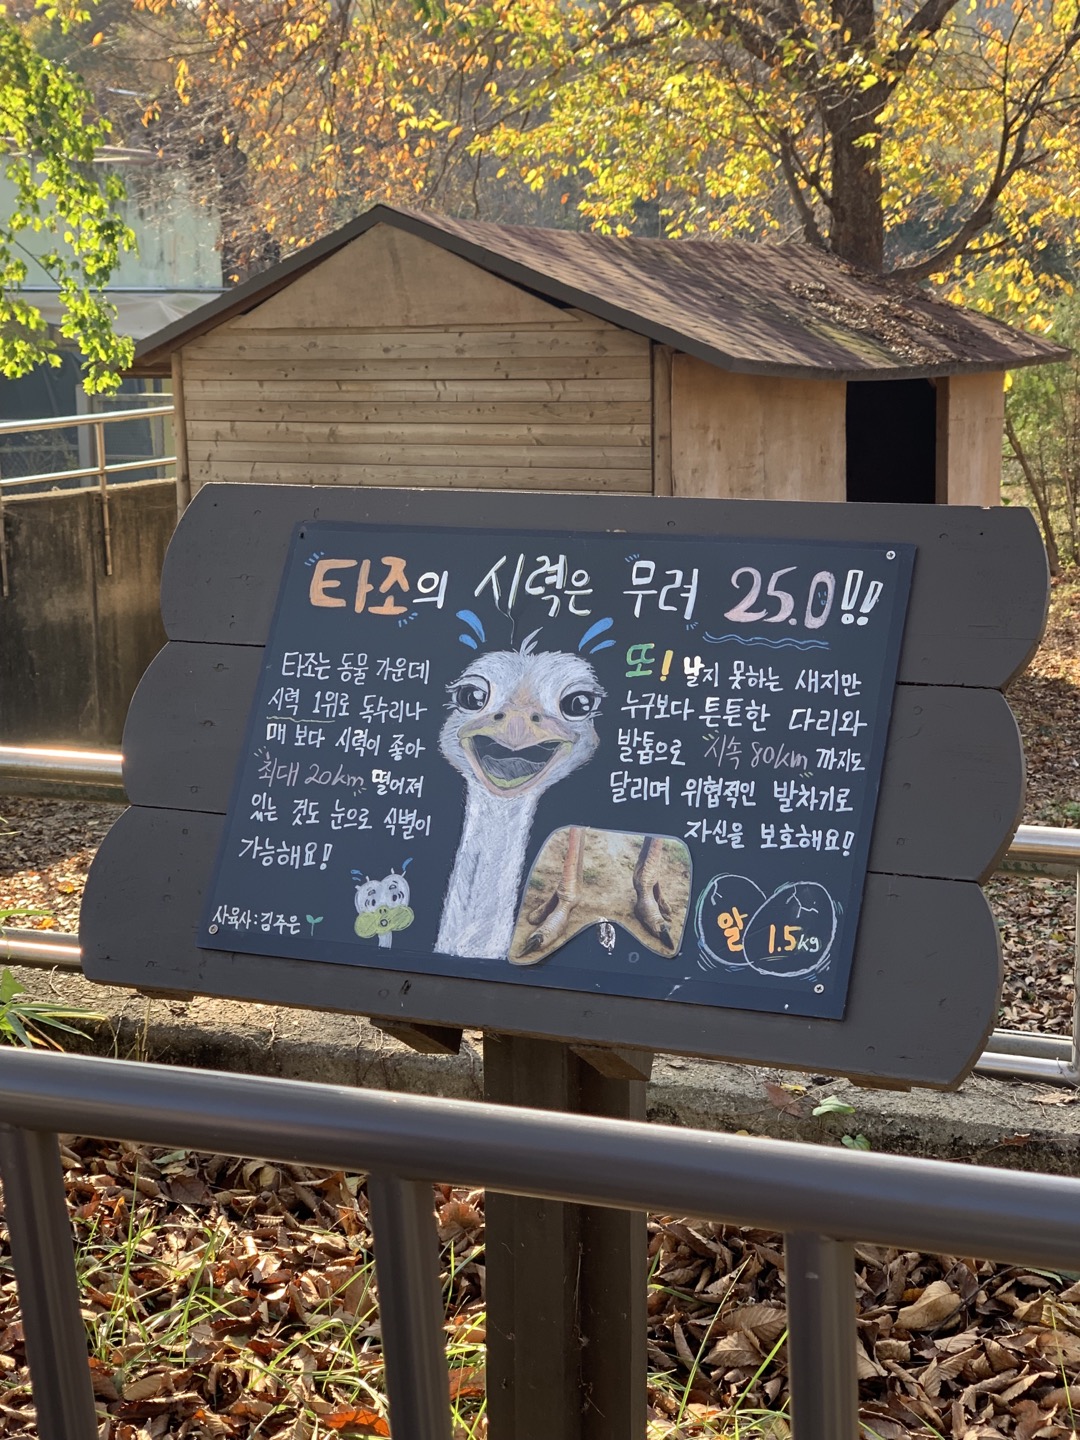 타조의 시력은 무려 25.0!!
타조는 동물 가운데
시력 1위로 독수리나
매 보다 시력이 좋아
최대 20km 떨어져
있는 것도 눈으로 식별이
가능해요!
사육사:김주은
또! 날지 못하는 새지만
누구보다 튼튼한 다리와
발톱으로 시속 80km 까지도
달리며 위협적인 발차기로
자신을 보호해요!
알 1.5kg